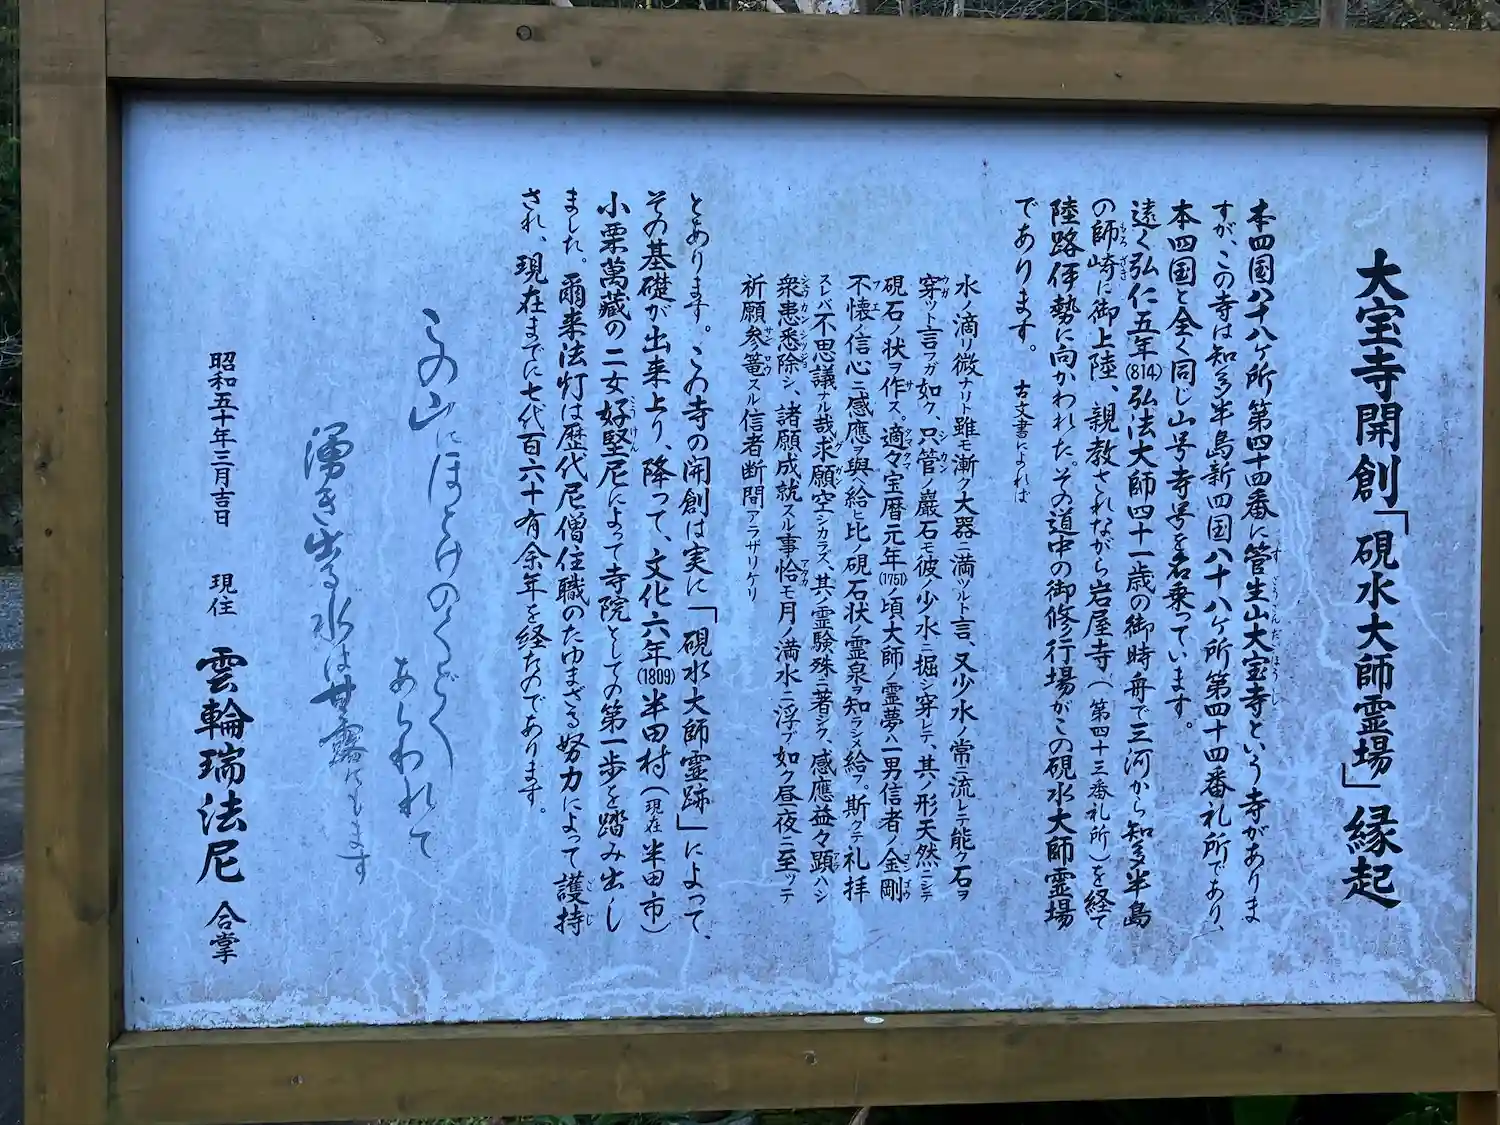 大宝寺開創「硯水大師霊場」縁起
本四国八十八ヶ所第四十四番に管生山大宝寺という寺がありま
すが、この寺は知多半島新四国八十八ケ所第四十四番礼所であり、
本四国と全く同じ山号寺号を名乗っています。
遠く弘仁五年(814)弘法大師四十一歳の御時舟で三河から知多半島
の師崎に御上陸、親教されながら岩屋寺(第四十三番礼所)を経て
陸路伊勢に向かわれた。その道中の御修行場がこの硯水大師霊場
であります。 古文書によれば
水ノ滴リ微ナリト雖モ漸ク大器ニ満ツルト言、又少水ノ常ニ流レテ能ク石ヲ
穿ツト言フガ如ク、只管ノ巖石モ彼少水ニ掘ㇼ穿レテ、其ノ形天然ニシテ
硯石ノ状ヲ作ス。適々宝暦元年(1751)ノ頃大師ノ霊夢ハ一男信者ノ金剛
不懐ノ信心ニ感應ヲ與ヘ給ヒ比ノ硯石状ノ霊泉ヲ知ラシメ給フ。斯クテ礼拝
スレバ不思議ナル哉求願空シカラズ、其ノ霊験殊ニ著シク、感應益々顕ハシ
衆患悉除シ、諸願成就スル事恰モ月ノ満水ニ浮ブ如ク昼夜ニ至ッテ
祈願参篭スル信者断間アラザリケリ
とあります。この寺の開創は実に「硯水大師霊跡」によって、
その基礎が出来上り、降って、文化六年(1809)半田村(現在半田市)
小栗萬藏の二女好堅尼によって寺院としての第一歩を踏み出し
ました。爾来法灯は歴代尼僧住職のたゆまざる努力によって護持
され、現在までに七代百六十有余年を経たのであります。
この山にほとけのくどく
あらわれて
湧き出る水は甘露にもます
昭和五十年三月吉日 現住 雲輪瑞法尼 合掌